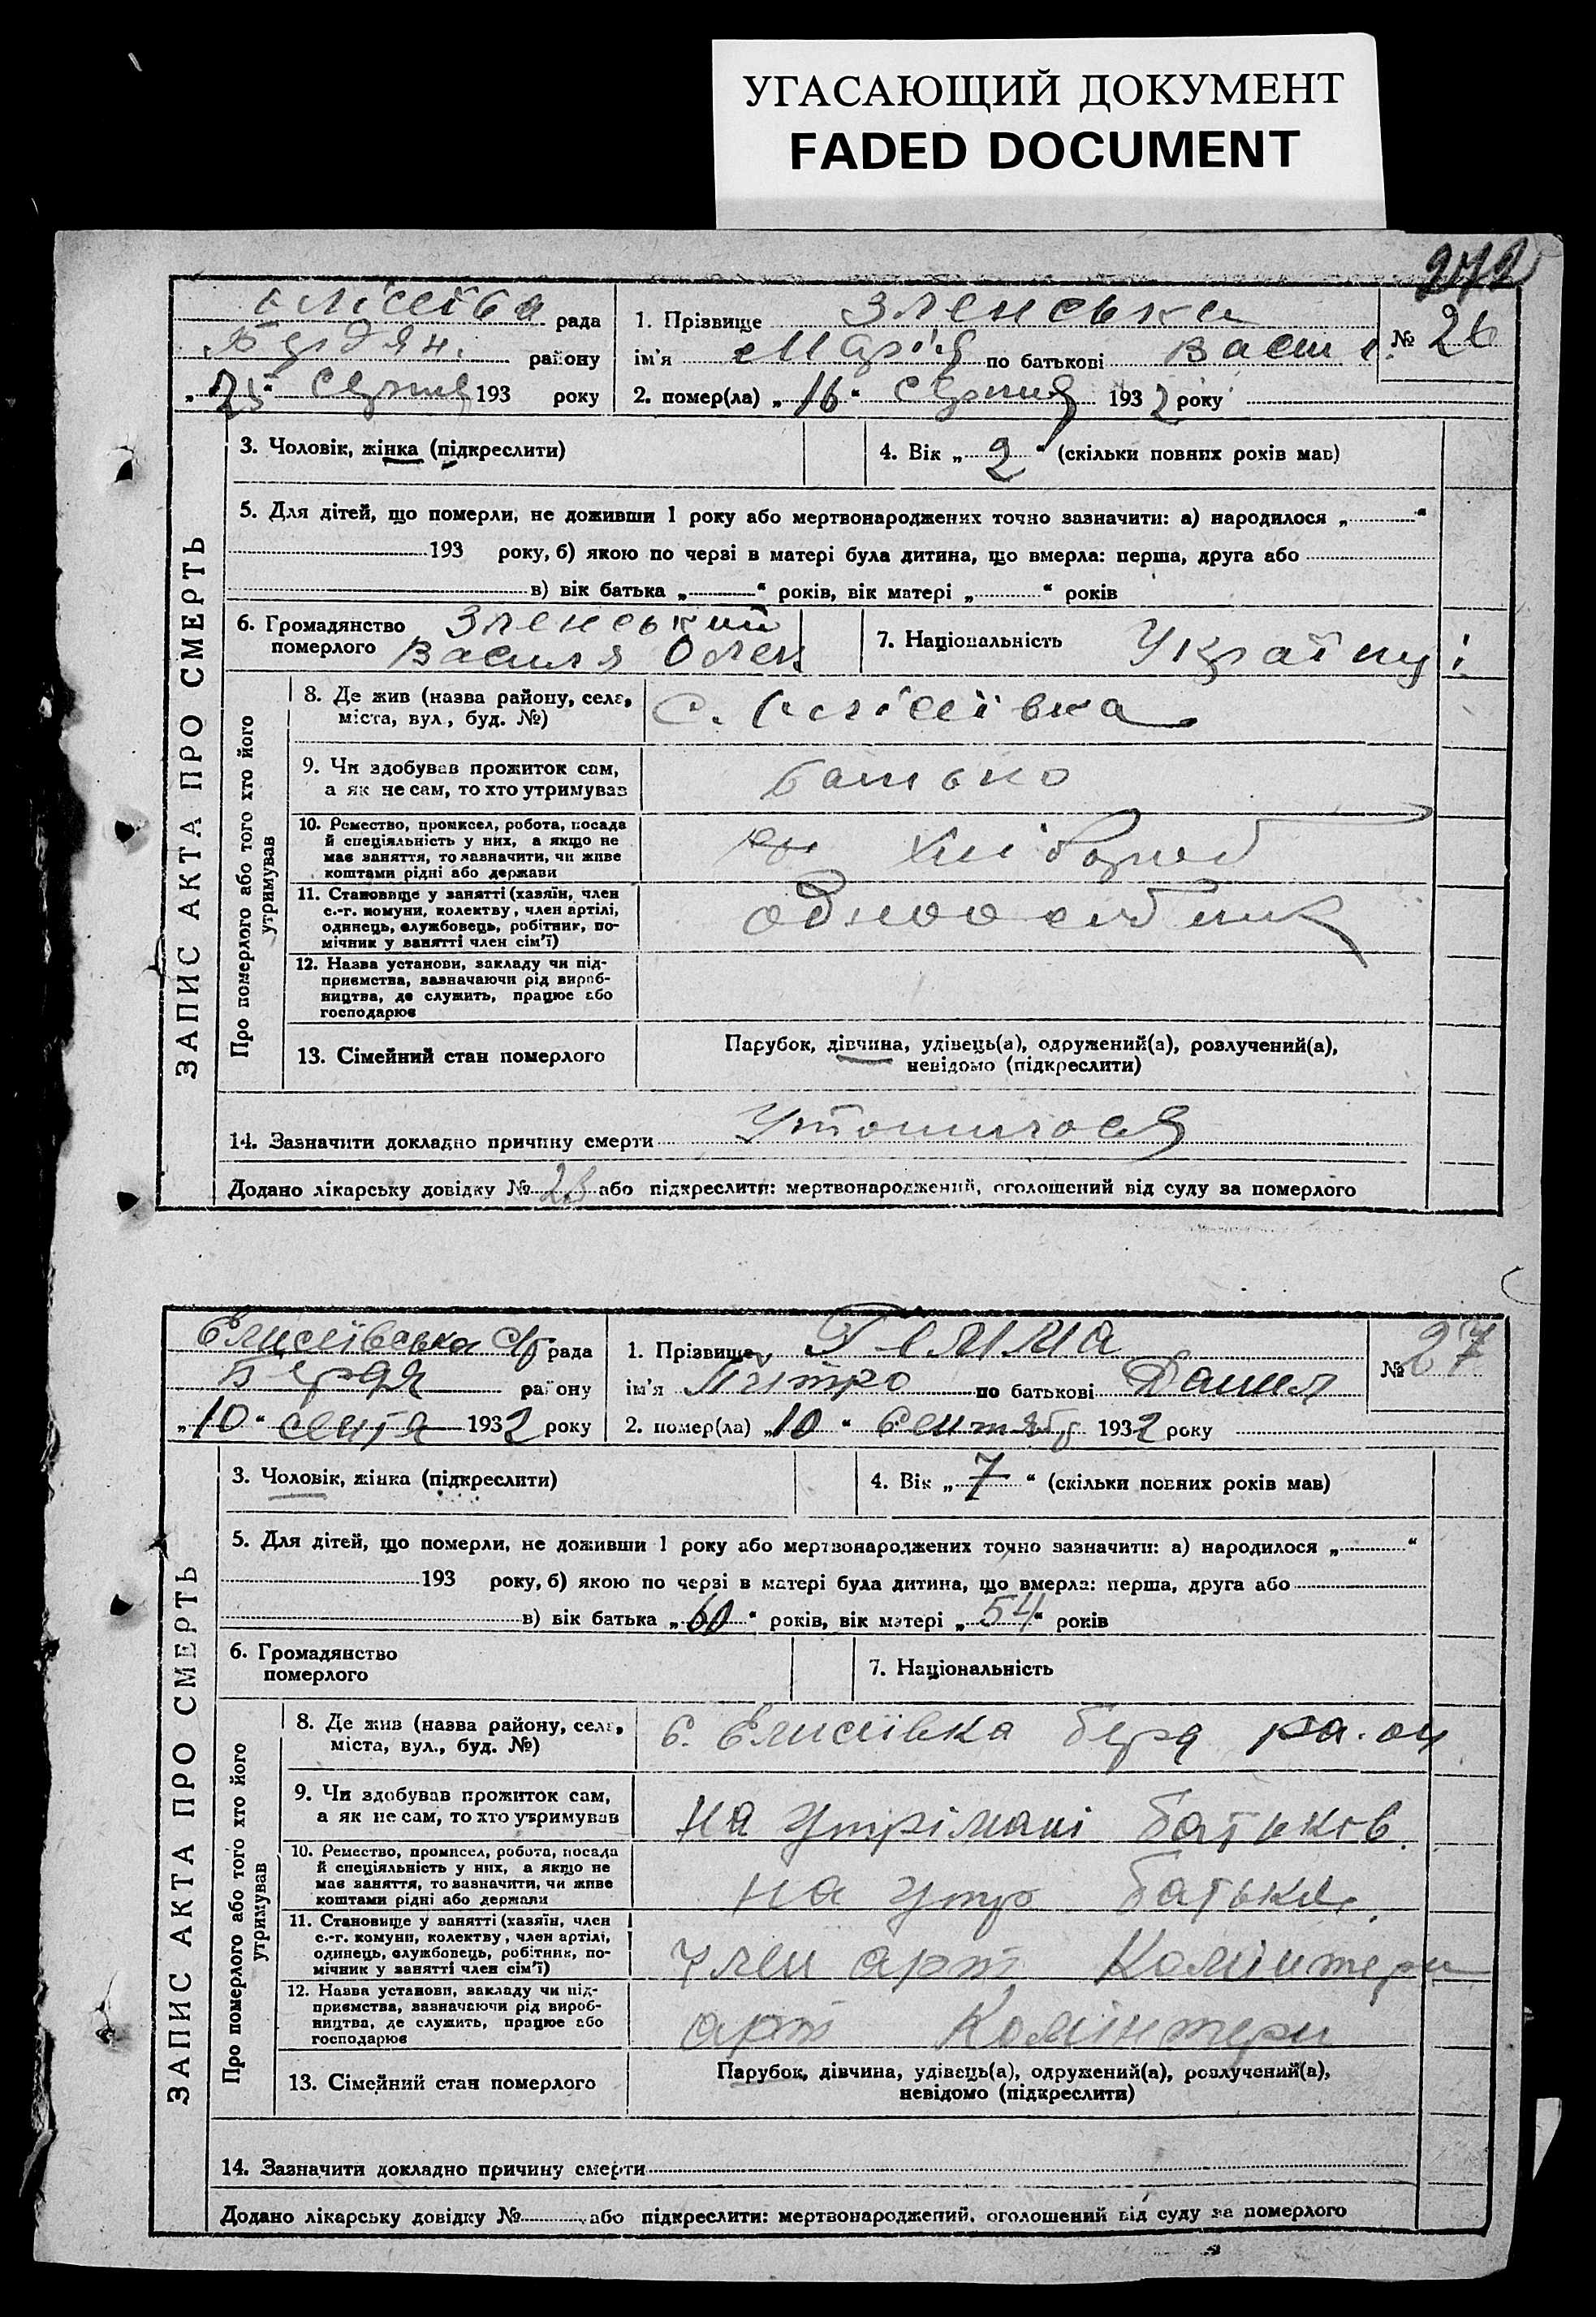 УГАСАЮЩИЙ ДОКУМЕНТ
FADED DOCUMENT
272
ЗАПИС АКТА ПРО СМЕРТЬ
рада
Бердян. району
„25“ Серпня 193 року
1. Прізвище Зленська
ім'я Марія по батькові Васил.
№ 26
2. помер(ла) „16“ Серпня 1932 року
3. Чоловік, жінка (підкреслити)
4. Вік „2“ (скільки повних років мав)
5. Для дітей, що померли, не доживши 1 року або мертвонароджених точно зазначити: а) народилося „ “
193 року, б) якою по черзі в матері була дитина, що вмерла: перша, друга або
в) вік батька „ “ років, вік матері „ “ років
6. Громадянство Зленський
померлого Василя Олек
7. Національність Україн
Про померлого або того хто його утримував
8. Де жив (назва району, села, міста, вул., буд. №)
с. Єлісіївка
9. Чи здобував прожиток сам, а як не сам, то хто утримував
батько
10. Ремество, промисел, робота, посада й спеціяльність у них, а якщо не має заняття, то зазначити, чи живе коштами рідні або держави
хлібороб
11. Становище у занятті (хазяїн, член с.-г. комуни, колектву, член артілі, одинець, службовець, робітник, помічник у занятті член сім'ї)
одноосібник
12. Назва установи, закладу чи підприємства, зазначаючи рід виробництва, де служить, працює або господарює
13. Сімейний стан померлого
Парубок, дівчина, удівець(а), одружений(а), розлучений(а),
невідомо (підкреслити)
14. Зазначити докладно причину смерти Утопилося
Додано лікарську довідку № або підкреслити: мертвонароджений, оголошений від суду за померлого
ЗАПИС АКТА ПРО СМЕРТЬ
Елисиївська С/р рада
Бердя району
„10“ сентя 1932 року
1. Прізвище
ім'я Пітро по батькові Данил
№ 27
2. помер(ла) „10“ Сентябр 1932 року
3. Чоловік, жінка (підкреслити)
4. Вік „7“ (скільки повних років мав)
5. Для дітей, що померли, не доживши 1 року або мертвонароджених точно зазначити: а) народилося „ “
193 року, б) якою по черзі в матері була дитина, що вмерла: перша, друга або
в) вік батька „60“ років, вік матері „54“ років
6. Громадянство
померлого
7. Національність
Про померлого або того хто його утримував
8. Де жив (назва району, села, міста, вул., буд. №)
с. Елисиївка берд ра.он
9. Чи здобував прожиток сам, а як не сам, то хто утримував
на утрімані батьков
10. Ремество, промисел, робота, посада й спеціяльність у них, а якщо не має заняття, то зазначити, чи живе коштами рідні або держави
на утр батьк
11. Становище у занятті (хазяїн, член с.-г. комуни, колектву, член артілі, одинець, службовець, робітник, помічник у занятті член сім'ї)
член арт Комінтерн
12. Назва установи, закладу чи підприємства, зазначаючи рід виробництва, де служить, працює або господарює
арт Комінтерн
13. Сімейний стан померлого
Парубок, дівчина, удівець(а), одружений(а), розлучений(а),
невідомо (підкреслити)
14. Зазначити докладно причину смерти
Додано лікарську довідку № або підкреслити: мертвонароджений, оголошений від суду за померлого